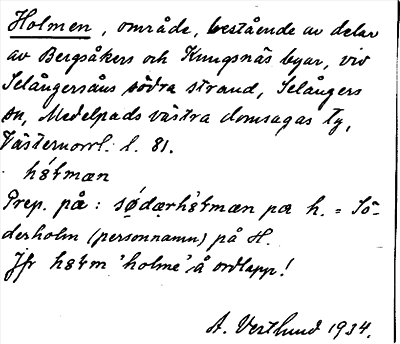 Holmen, område, bestående av delar
av Bergsåkers och Kungsnäs byar, vid
Selångersåns södra strand, Selångers
sn, Medelpads västra domsagas tg,
Västernorrl. l. 81.
Prep. på: h. = Sö-
derholm (personnamn) på H.
Jfr 'holme' å ordlapp!
A. Vestlund 1934.